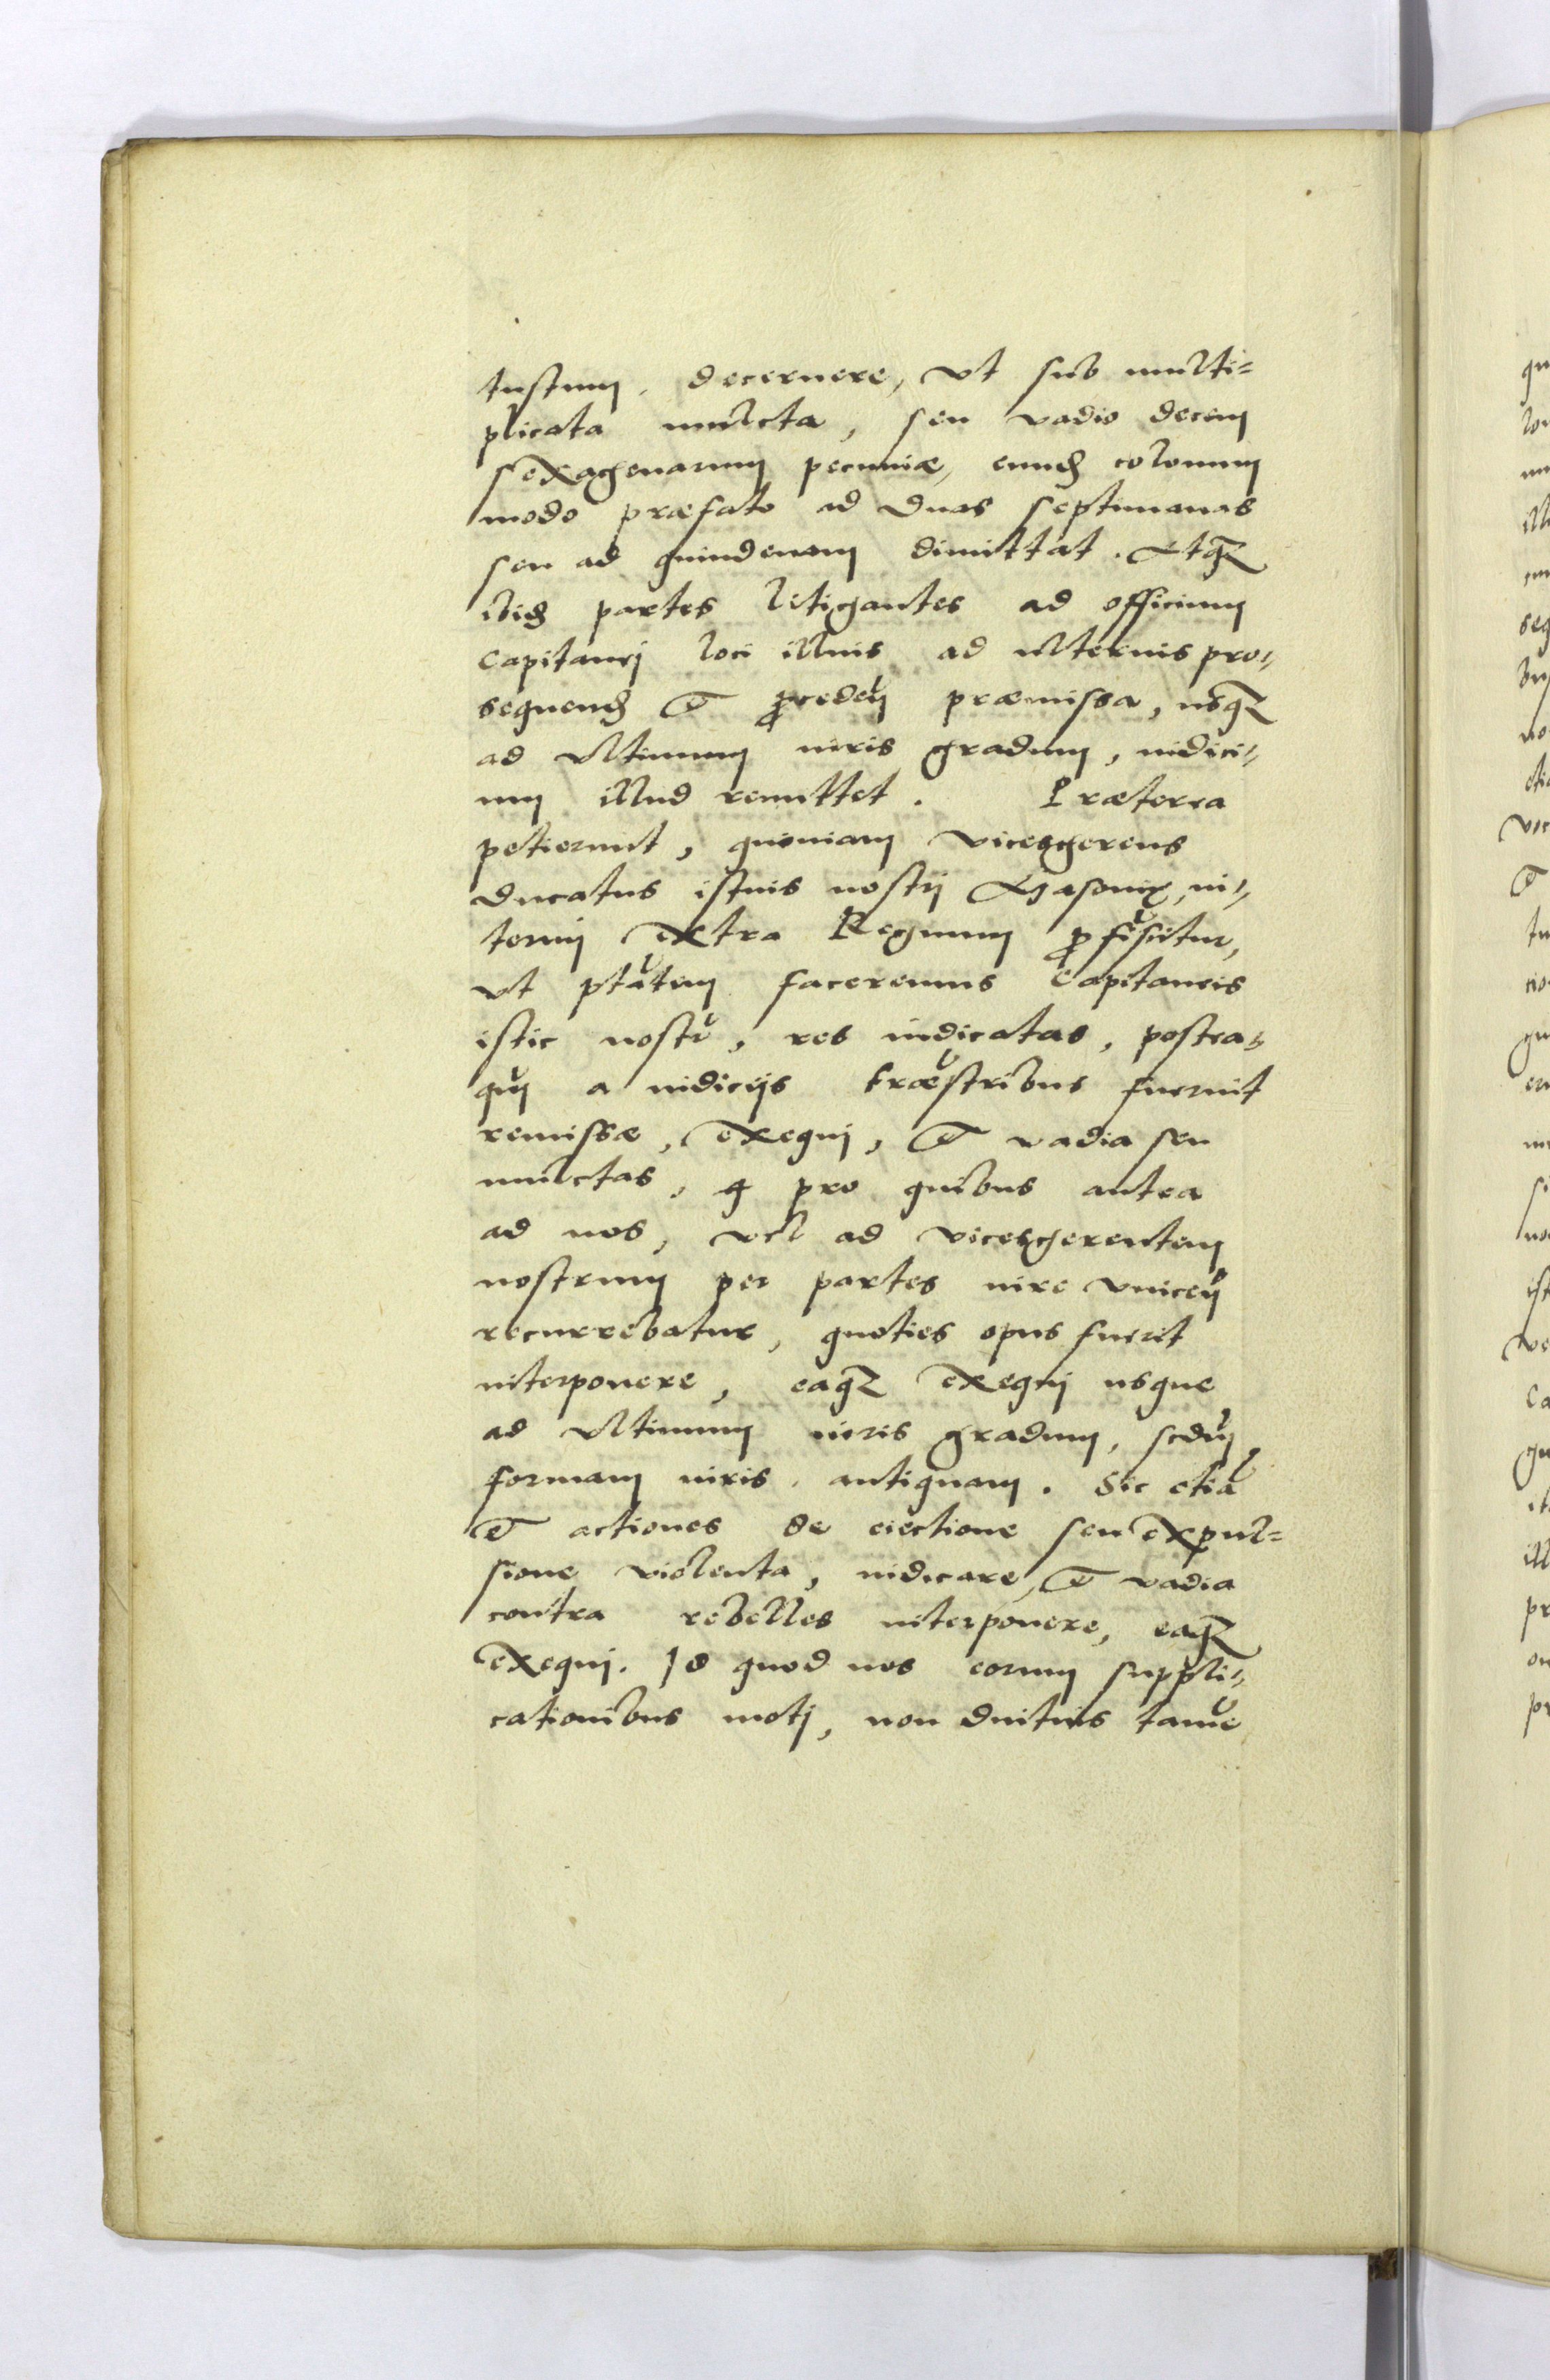 tustum, decernere, vt sub multi=
plicata mulcta, seu vadio decem
sexagenarum pecuniæ, eund colonum
modo præfato ad duas septimanas
seu ad quindenam dimittat. Atq
ibid partes litigantes ad officium
Capitanei loci illius ad vlterius pro-
sequend et proceden præmissa, usq
ad vltimum iuris gradum, iudici-
um illud remittet. Præterea
petierunt, quoniam vicesgerens
Ducatus istius nostri Masouiæ, in-
terim extra Regnum proficiscitur,
vt ptatem faceremus Capitaneis
istic nostr, res iudicatas, postea-
qm a iudicijs terrestribus fuerint
remissæ, exequi, et vadia seu
mulctas, q pro quibus antea
ad nos, vel ad vicesgerentem
nostrum per partes iure vincen
recurrebatur, quoties opus fuerit
interponere, eaq exequi usque
ad vltimum iuris gradum, scdm
formam iuris antiquam. Sic etia
et actiones de eiectione seu expul=
sione violenta, iudicare, et vadia
contra rebelles interponere, eaq
exequi. Id quod nos eorum suppli-
cationibus moti, non diutius tame